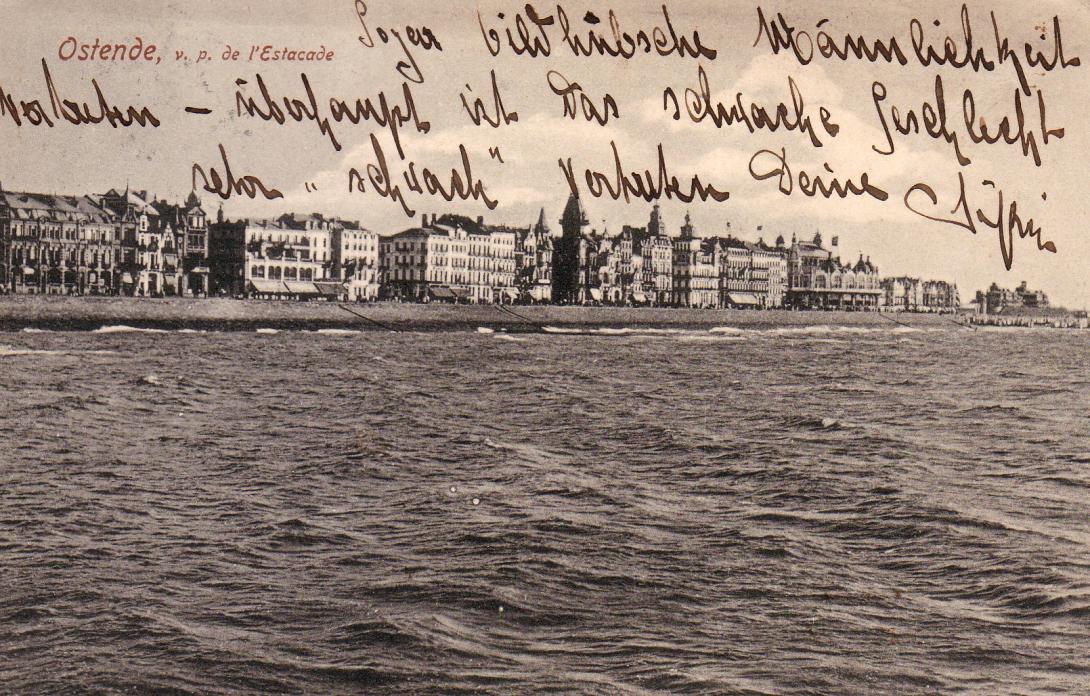 Ostende, v. p. de l'Estacade
Sogar bildhübsche Männlichkeit
vertreten – überhaupt ist das schwache Geschlecht
sehr „schwach" vertreten Deine